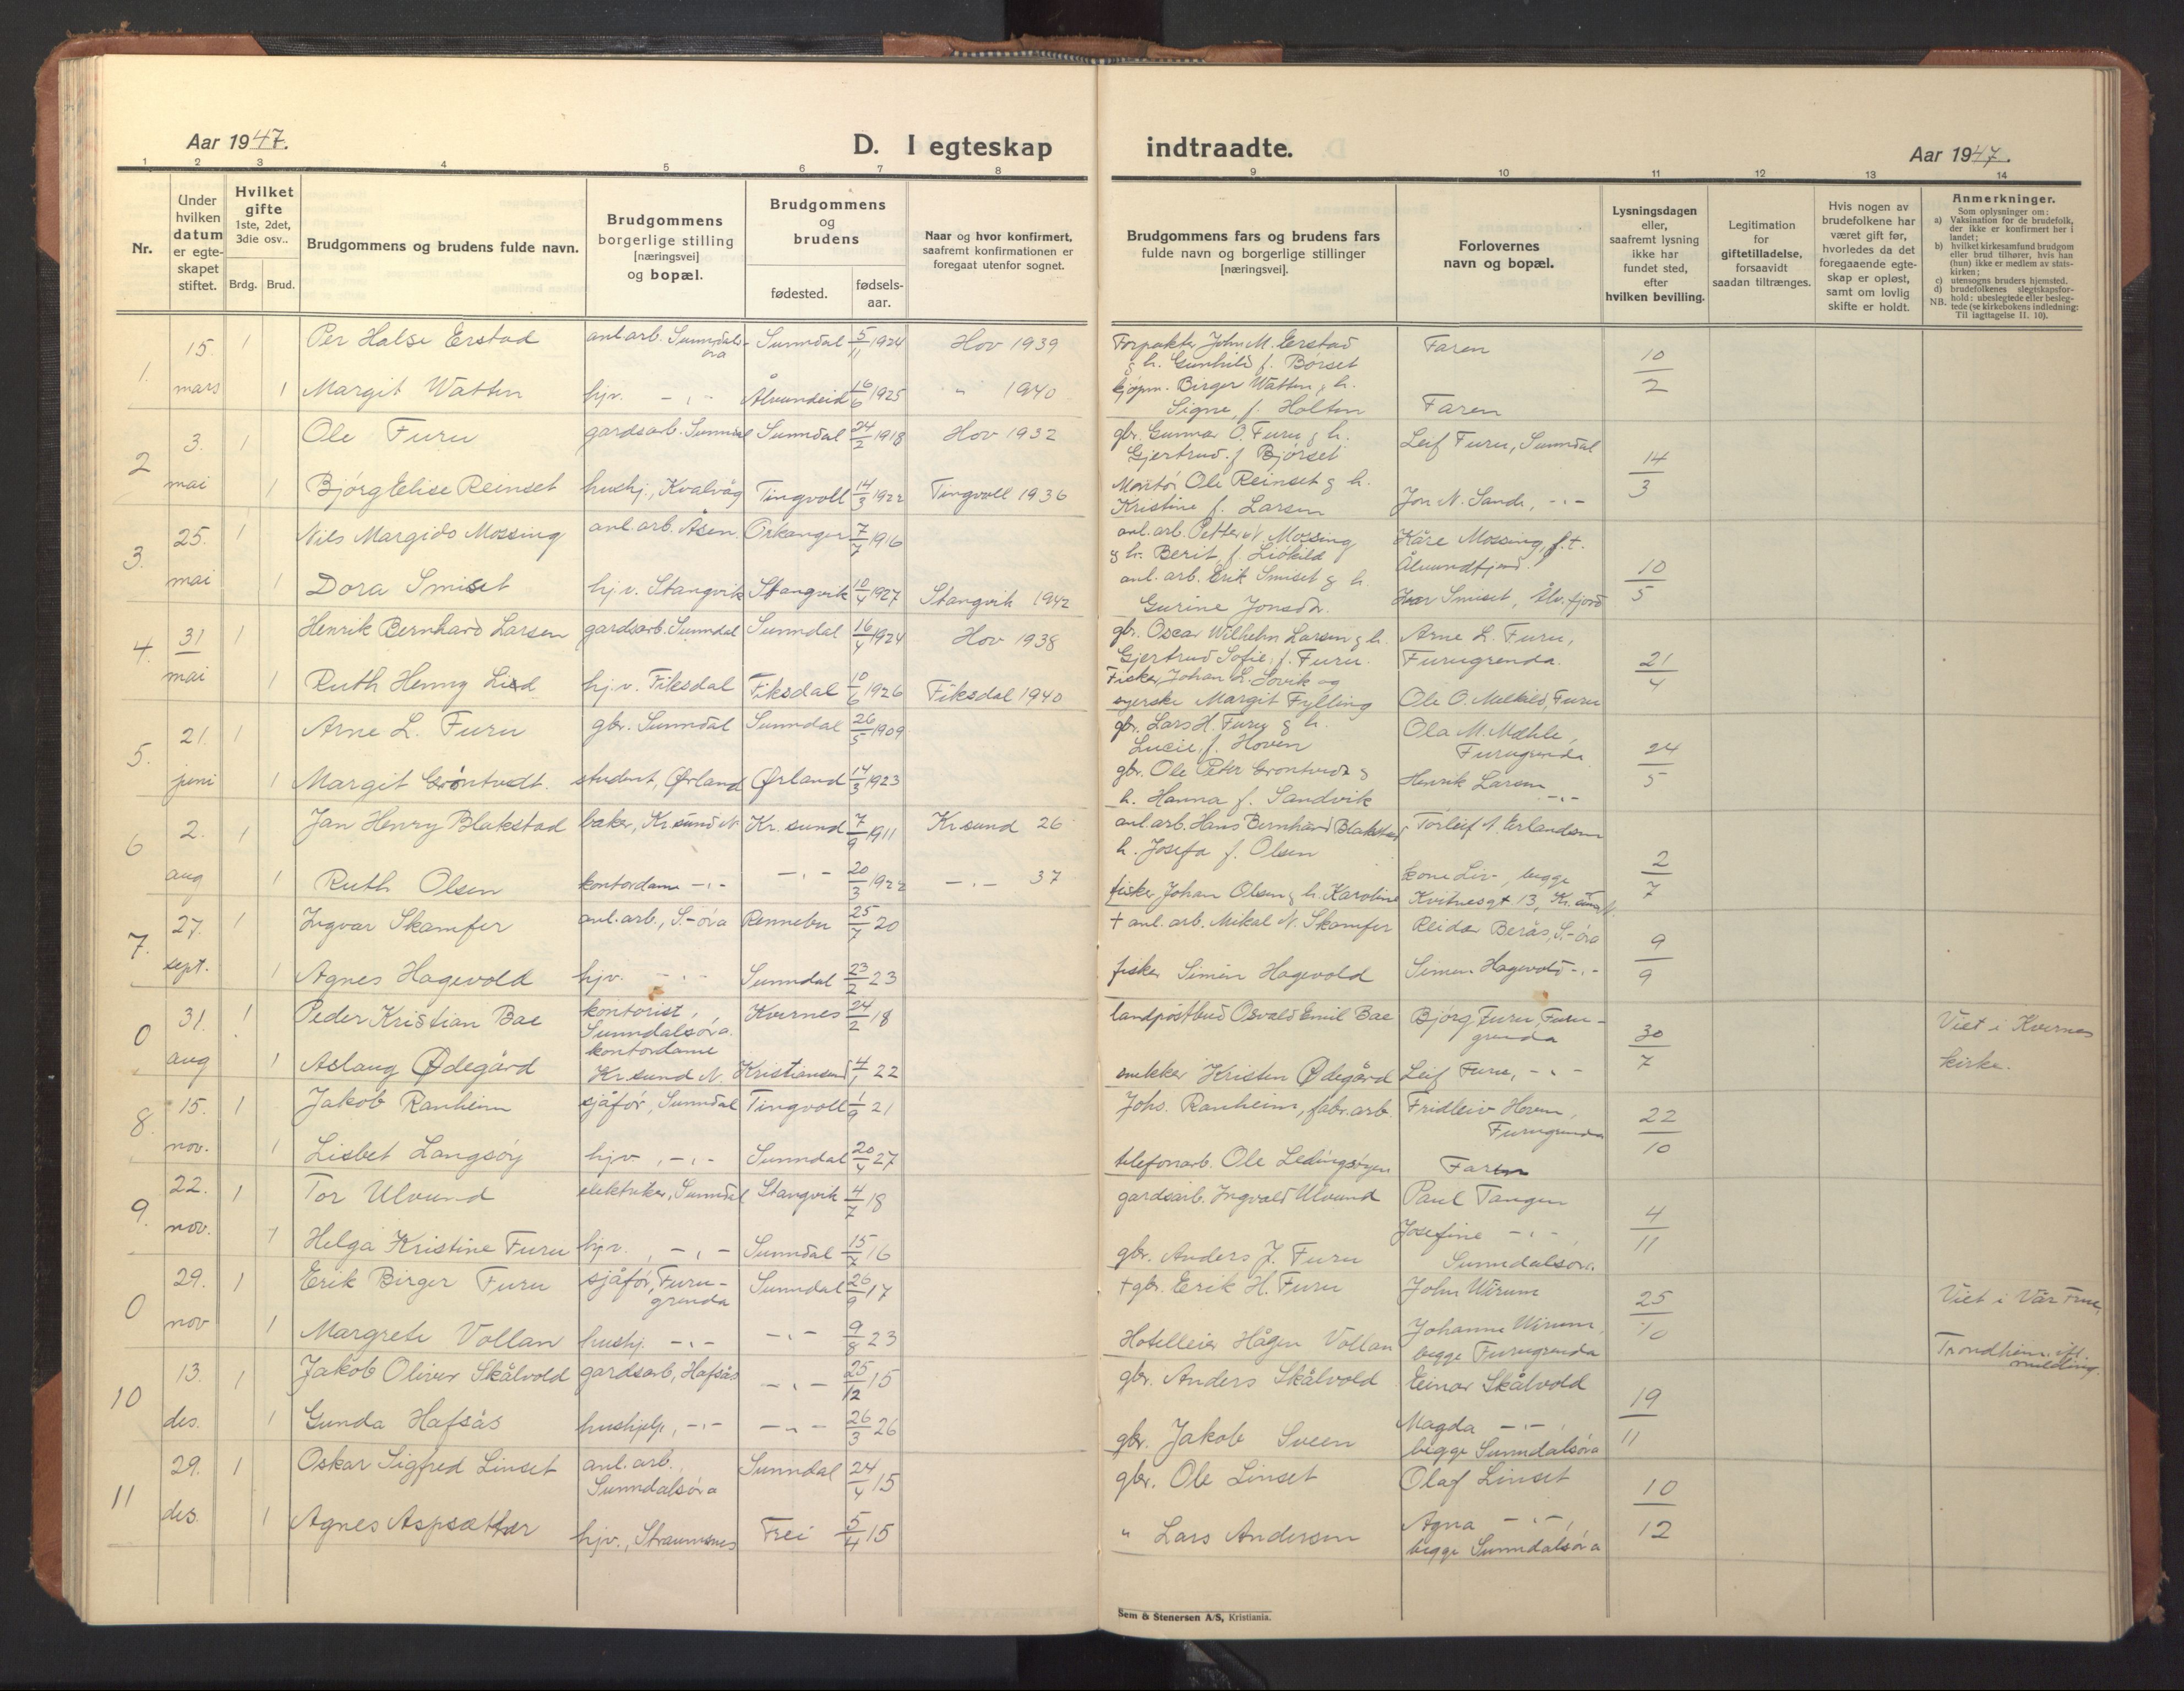 Aar 1947.
D. I egteskap indtraadte.
Aar 1947.
1 2 3 4 5 6 7 8 9 10 11 12 13 14
Nr.
Under
hvilken
datum
er egte-
skapet
stiftet.
Hvilket
gifte
1ste, 2det,
3die osv..
Brdg. Brud.
Brudgommens og brudens fulde navn.
Brudgommens
borgerlige stilling
[næringsvei]
og bopæl.
Brudgommens
og
brudens
fødested.
fødsels-
aar.
Naar og hvor konfirmert,
saafremt konfirmationen er
foregaat utenfor sognet.
Brudgommens fars og brudens fars
fulde navn og borgerlige stillinger
[næringsvei].
Forlovernes
navn og bopæl.
Lysningsdagen
eller,
saafremt lysning
ikke har
fundet sted,
efter
hvilken bevilling.
Legitimation
for
giftetilladelse,
forsaavidt
saadan tiltrænges.
Hvis nogen av
brudefolkene har
været gift før,
hvorledes da det
foregaaende egte-
skap er opløst,
samt om lovlig
skifte er holdt.
Anmerkninger.
Som oplysninger om:
a) Vaksination for de brudefolk,
der ikke er konfirmert her i
landet;
b) hvilket kirkesamfund brudgom
eller brud tilhører, hvis han
(hun) ikke er medlem av stats-
kirken;
c) utensogns bruders hjemsted.
d) brudefolkenes slegtskapsfor-
NB. hold: ubeslegtede eller besleg-
tede (se kirkebokens indledning:
Til iagttagelse II. 10).
1. 15. mars 1 Per Halse Erstad anl.arb. Sunndals-
øra Sunndal 5/11 1924 Hov 1939 Forpakter John M. Erstad
g h. Gunhild f. Børset Faren 10/2
1 Margit Watten hjv. -,- Ålvundeid 16/6 1925 " 1940 kjøpm. Birger Watten g h.
Signe, f. Holten Faren
2 3. mai 1 Ole Furu gardsarb. Sunndal Sunndal 24/2 1918 Hov 1932 gbr. Gunnar O. Furu g h.
Gjertrud f. Bjørset Leif Furu, Sunndal 14/3
1 Bjørg Elise Reinset hushj., Kvalvåg Tingvoll 14/3 1922 Tingvoll 1936 Montør Ole Reinset g h.
Kristine f. Larsen Jon N. Sande, -,-
3. 25. mai 1 Nils Margido Mossing anl.arb. Åsen. Orkanger 7/7 1916 anl.arb. Petter N. Mossing
g h. Berit, f. Liøkild Kåre Mossing, f.t.
Ålvundfjord. 10/5
1 Dora Smiset hj.v. Stangvik Stangvik 10/4 1927 Stangvik 1942 anl. arb. Erik Smiset g h.
Gurine Jonsdr. Ivar Smiset, Ålv.fjord
4. 31 mai 1 Henrik Bernhard Larsen gardsarb. Sunndal Sunndal 16/4 1924 Hov 1938 gbr. Oscar Wilhelm Larsen g h.
Gjertrud Sofie, f. Furu. Arne L. Furu,
Furugrenda. 21/4
1 Ruth Henny Lied hj.v. Fiksdal Fiksdal 10/6 1926 Fiksdal 1940 Fisker Johan L. Sovik og
syerske Margit Fylling Ole O. Melkild, Furu
5. 21. juni 1 Arne L. Furu gbr. Sunndal Sunndal 26/5 1909 gbr. Lars H. Furu g h.
Lucie, f. Hoven Ola M. Mæhle,
Furugrenda 24/5
1 Margit Grøntvedt. student, Ørland Ørland 14/3 1923 gbr. Ole Peter Grøntvedt g
h. Hanna f. Sandvik Henrik Larsen
-,-
6 2. aug 1 Jan Henry Blakstad baker, Kr.sund N. Kr.sund 7/9 1911 Kr.sund 26 anl.arb. Hans Bernhard Blakstad
h. Josefa f. Olsen Torleif N. Erlandsen 2/7
1 Ruth Olsen kontordame -,- -,- 20/3 1922 -,- 37 fisker Johan Olsen g h. Karoline kone Liv-, begge
Kvitnesgt. 13, Kr.sund N.
7. 27. sept. 1 Ingvar Skamfer anl.arb., S-øra Rennebu 25/7 20 + anl. arb. Mikal N. Skamfer Reidar Berås, S-øra 9/9
1 Agnes Hagevold hjv. -,- Sunndal 23/2 23 fisker Simen Hagevold Simen Hagevold -,-
0 31. aug 1 Peder Kristian Bae kontorist,
Sunndalsøra. Kvernes 24/2 18 landpostbud Osvald Emil Bae Bjørg Furu, Furu-
grenda 30/7 Viet i Kvernes
kirke.
1 Aslaug Ødegård kontordame
Kr.sund N. Kristiansund 4/1 22 snekker Kristen Ødegård Leif Furu, -,-
8. 15. nov. 1 Jakob Ranheim sjåfør, Sunndal Tingvoll 1/9 21 Johs. Ranheim, fabr.arb. Fridleiv Hoven,
Furugrenda 22/10
1 Lisbet Langsøy hjv. ,-,- Sunndal 20/4 27 telefonarb. Ole Ledingsøyen Faren
9. 22. nov. 1 Tor Ulvund elektriker, Sunndal Stangvik 4/7 18 gardsarb. Ingvald Ulvund Paul Tangen 4/11
1 Helga Kristine Furu hjv. , -,- Sunndal 15/7 16 gbr. Anders J. Furu Josefine -,-,
Sunndalsøra.
0 29. nov 1 Erik Birger Furu sjåfør, Furu-
grenda Sunndal 26/9 17 + gbr. Erik H. Furu John Wirum 25/10 Viet i Vår Frue,
Trondheim, ifl.
melding.
1 Margrete Vollan hushj. -,- -,- 9/8 23 Hotelleier Hågen Vollan Johanne Wirum,
begge Furugrenda
10 13. des. 1 Jakob Oliver Skålvold gardsarb, Hafsås -,- 25/12 15 gbr. Anders Skålvold Einar Skålvold 19/11
1 Gunda Hafsås hushjelp, -,- -,- 26/3 26 gbr. Jakob Sveen Magda -,-,
begge Sunndalsøra
11 29. des. 1 Oskar Sigfred Linset anl.arb.,
Sunndalsøra Sunndal 24/4 15 gbr. Ole Linset Olaf Linset 10/12
1 Agnes Aspsætter hjv., Straumsnes Frei 5/4 15 " Lars Andersen Agna -,-,
begge Sunndalsøra
Sem & Stenersen A/S, Kristiania.